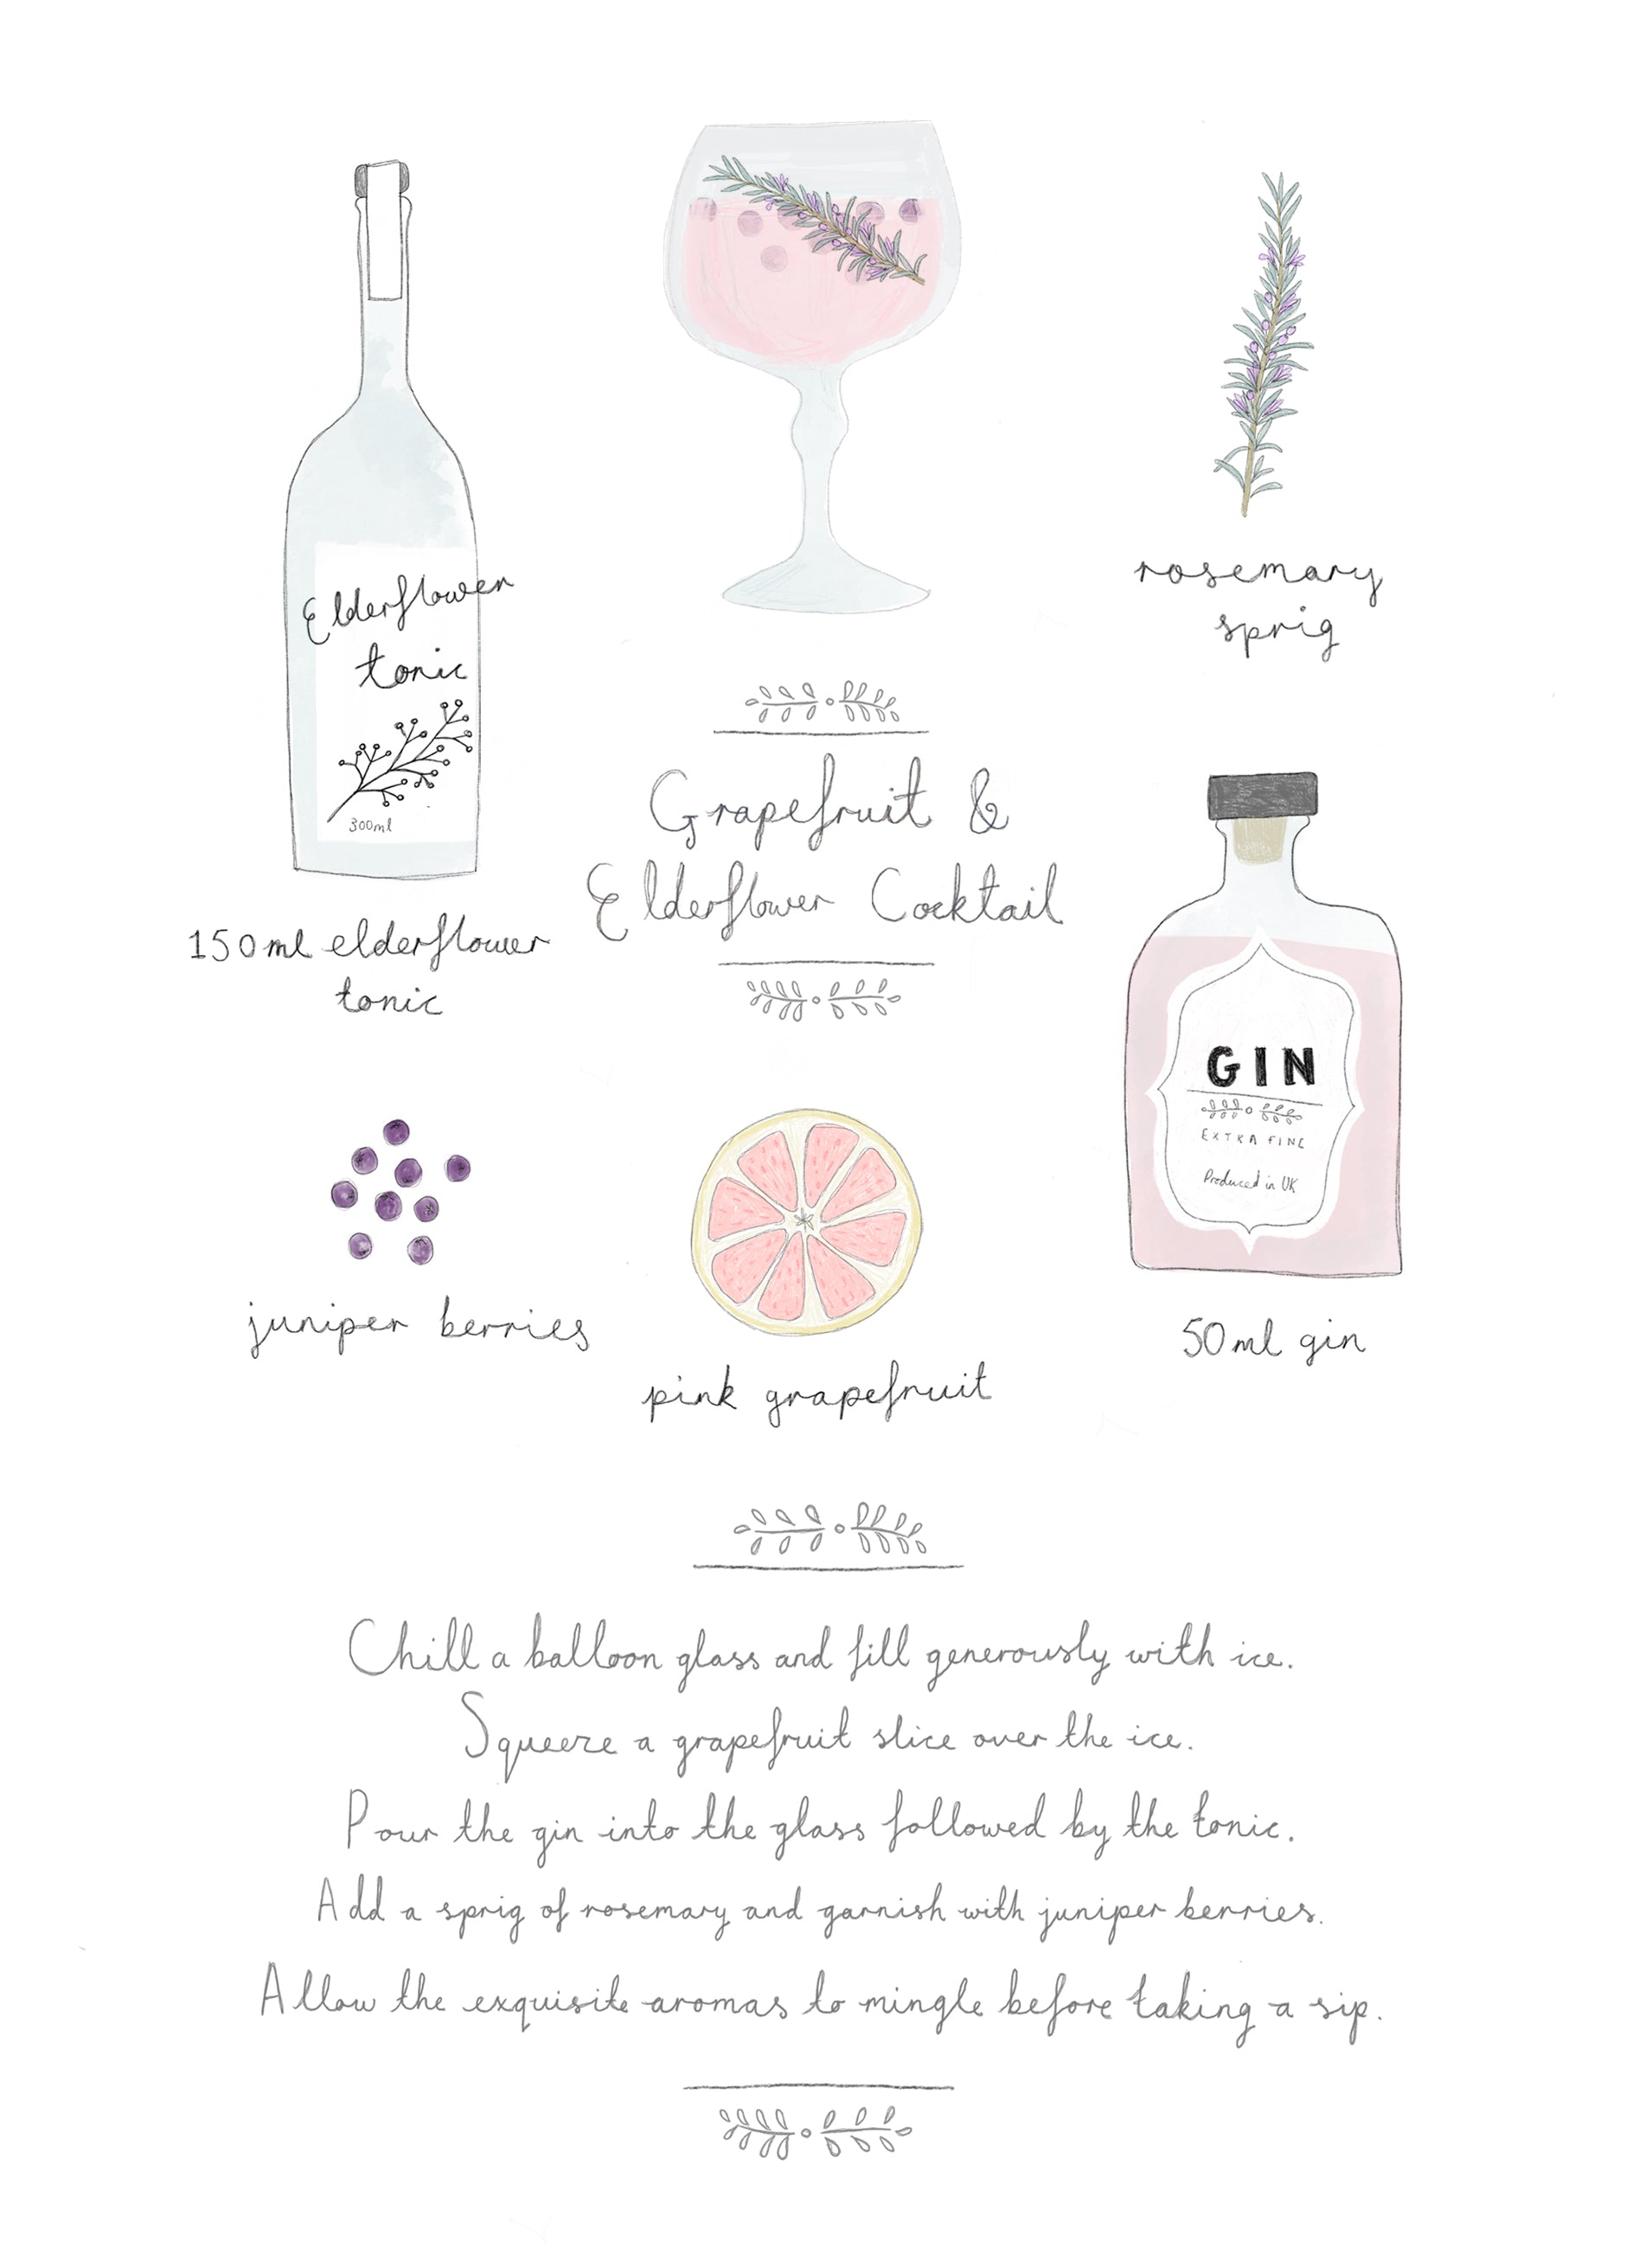 Elderflower
tonic
300ml
150ml elderflower
tonic
rosemary
sprig
Grapefruit &
Elderflower Cocktail
GIN
EXTRA FINE
Produced in UK
50ml gin
juniper berries
pink grapefruit
Chill a balloon glass and fill generously with ice.
Squeeze a grapefruit slice over the ice.
Pour the gin into the glass followed by the tonic.
Add a sprig of rosemary and garnish with juniper berries.
Allow the exquisite aromas to mingle before taking a sip.